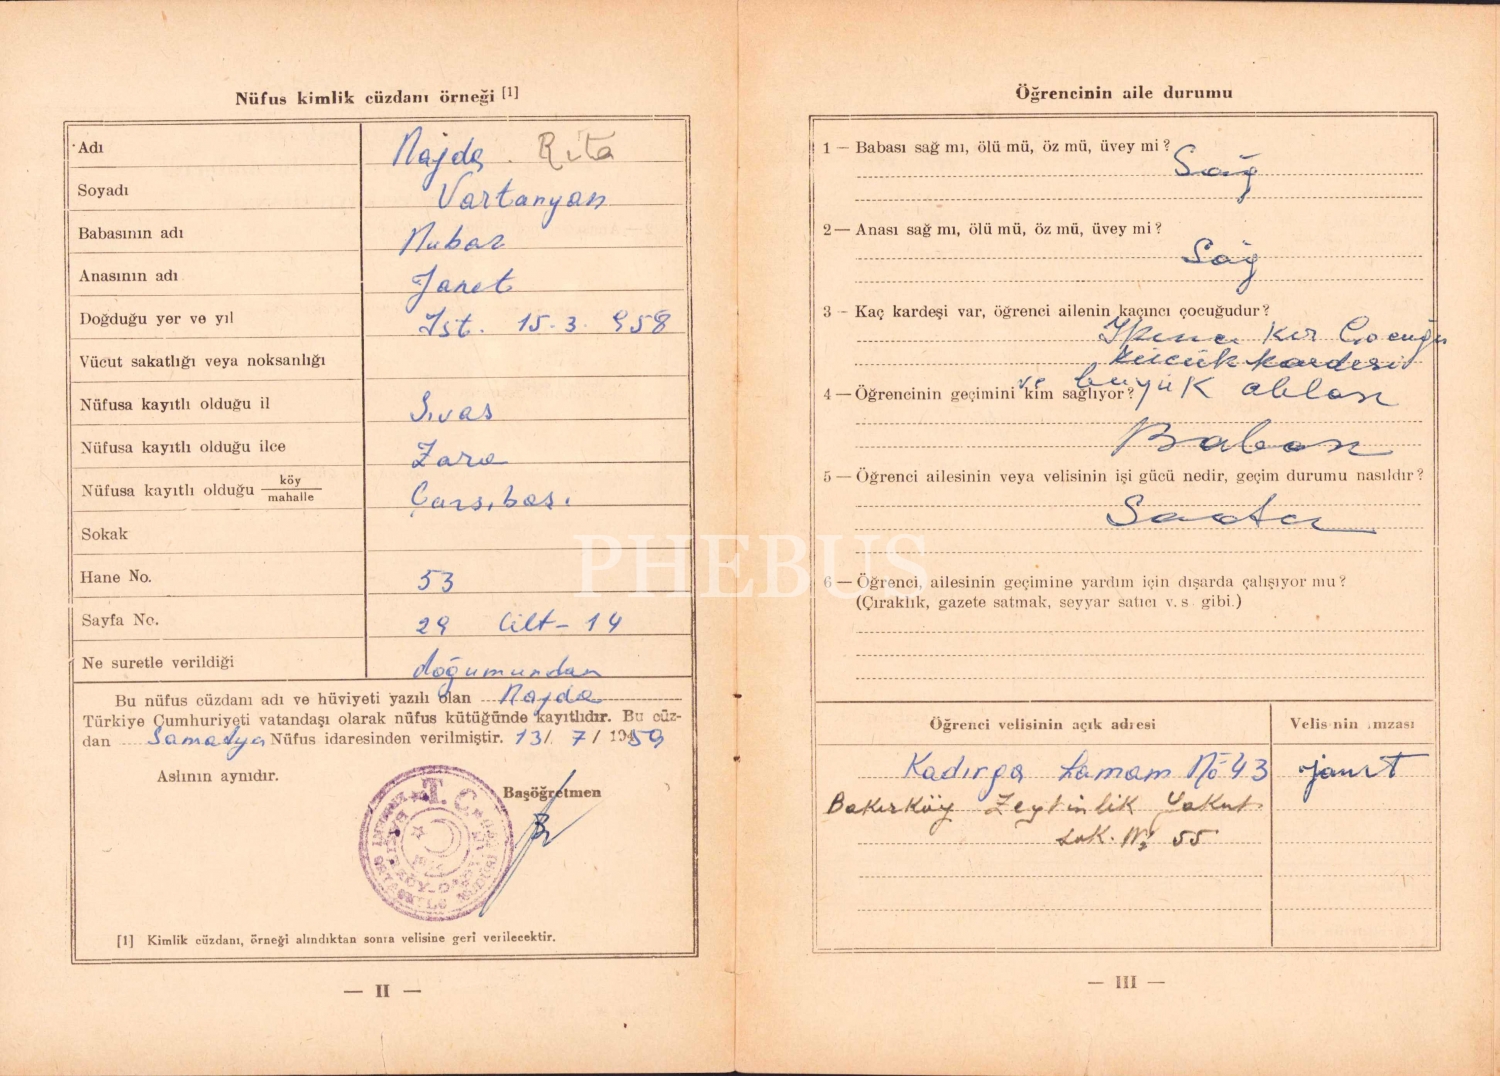 Nüfus kimlik cüzdanı örneği [1]
Adı Najda Rita
Soyadı Vartanyan
Babasının adı Nubar
Anasının adı Janet
Doğduğu yer ve yıl İst. 15.3.958
Vücut sakatlığı veya noksanlığı
Nüfusa kayıtlı olduğu il Sivas
Nüfusa kayıtlı olduğu ilce Zara
Nüfusa kayıtlı olduğu köy/mahalle Çarşıbaşı
Sokak
Hane No. 53
Sayfa No. 29 Cilt-14
Ne suretle verildiği doğumundan
Bu nüfus cüzdanı adı ve hüviyeti yazılı olan Najda
Türkiye Cumhuriyeti vatandaşı olarak nüfus kütüğünde kayıtlıdır. Bu cüz-
dan Samatya Nüfus idaresinden verilmiştir. 13/7/1959
Aslının aynıdır.
Başöğretmen
T.C.
[1] Kimlik cüzdanı, örneği alındıktan sonra velisine geri verilecektir.
— II —
Öğrencinin aile durumu
1 — Babası sağ mı, ölü mü, öz mü, üvey mi?
Sağ
2 — Anası sağ mı, ölü mü, öz mü, üvey mi?
Sağ
3 - Kaç kardeşi var, öğrenci ailenin kaçıncı çocuğudur?
İkinci kız Çocuğu
küçük kardesi
ve büyük ablası
4 — Öğrencinin geçimini kim sağlıyor?
Babası
5 — Öğrenci ailesinin veya velisinin işi gücü nedir, geçim durumu nasıldır?
6 — Öğrenci, ailesinin geçimine yardım için dışarda çalışıyor mu?
(Çıraklık, gazete satmak, seyyar satıcı v. s gibi.)
Öğrenci velisinin açık adresi
Velis nin imzası
Kadırga Hamam No 43
Janet
Bakırköy Zeytinlik Yakut
Sok. No 55
— III —
PHEBUS